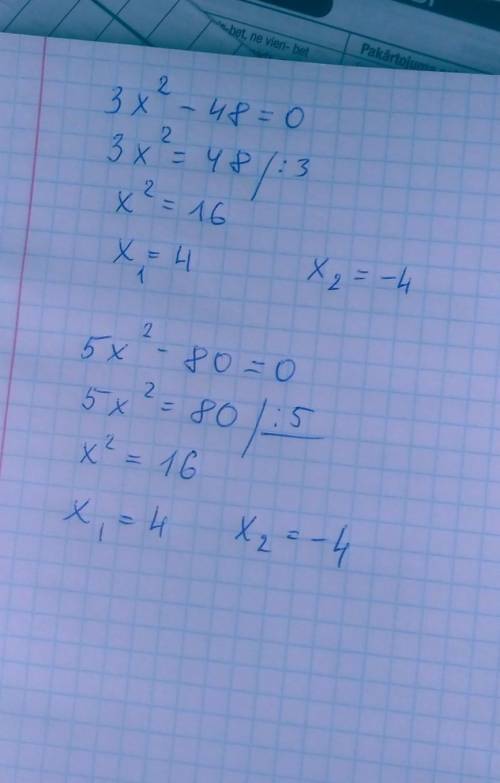 -bet, ne vien- bet
Pakārtojuma
3x² - 48 = 0
3x² = 48 /:3
x² = 16
x₁ = 4 x₂ = -4
5x² - 80 = 0
5x² = 80 /:5
x² = 16
x₁ = 4 x₂ = -4